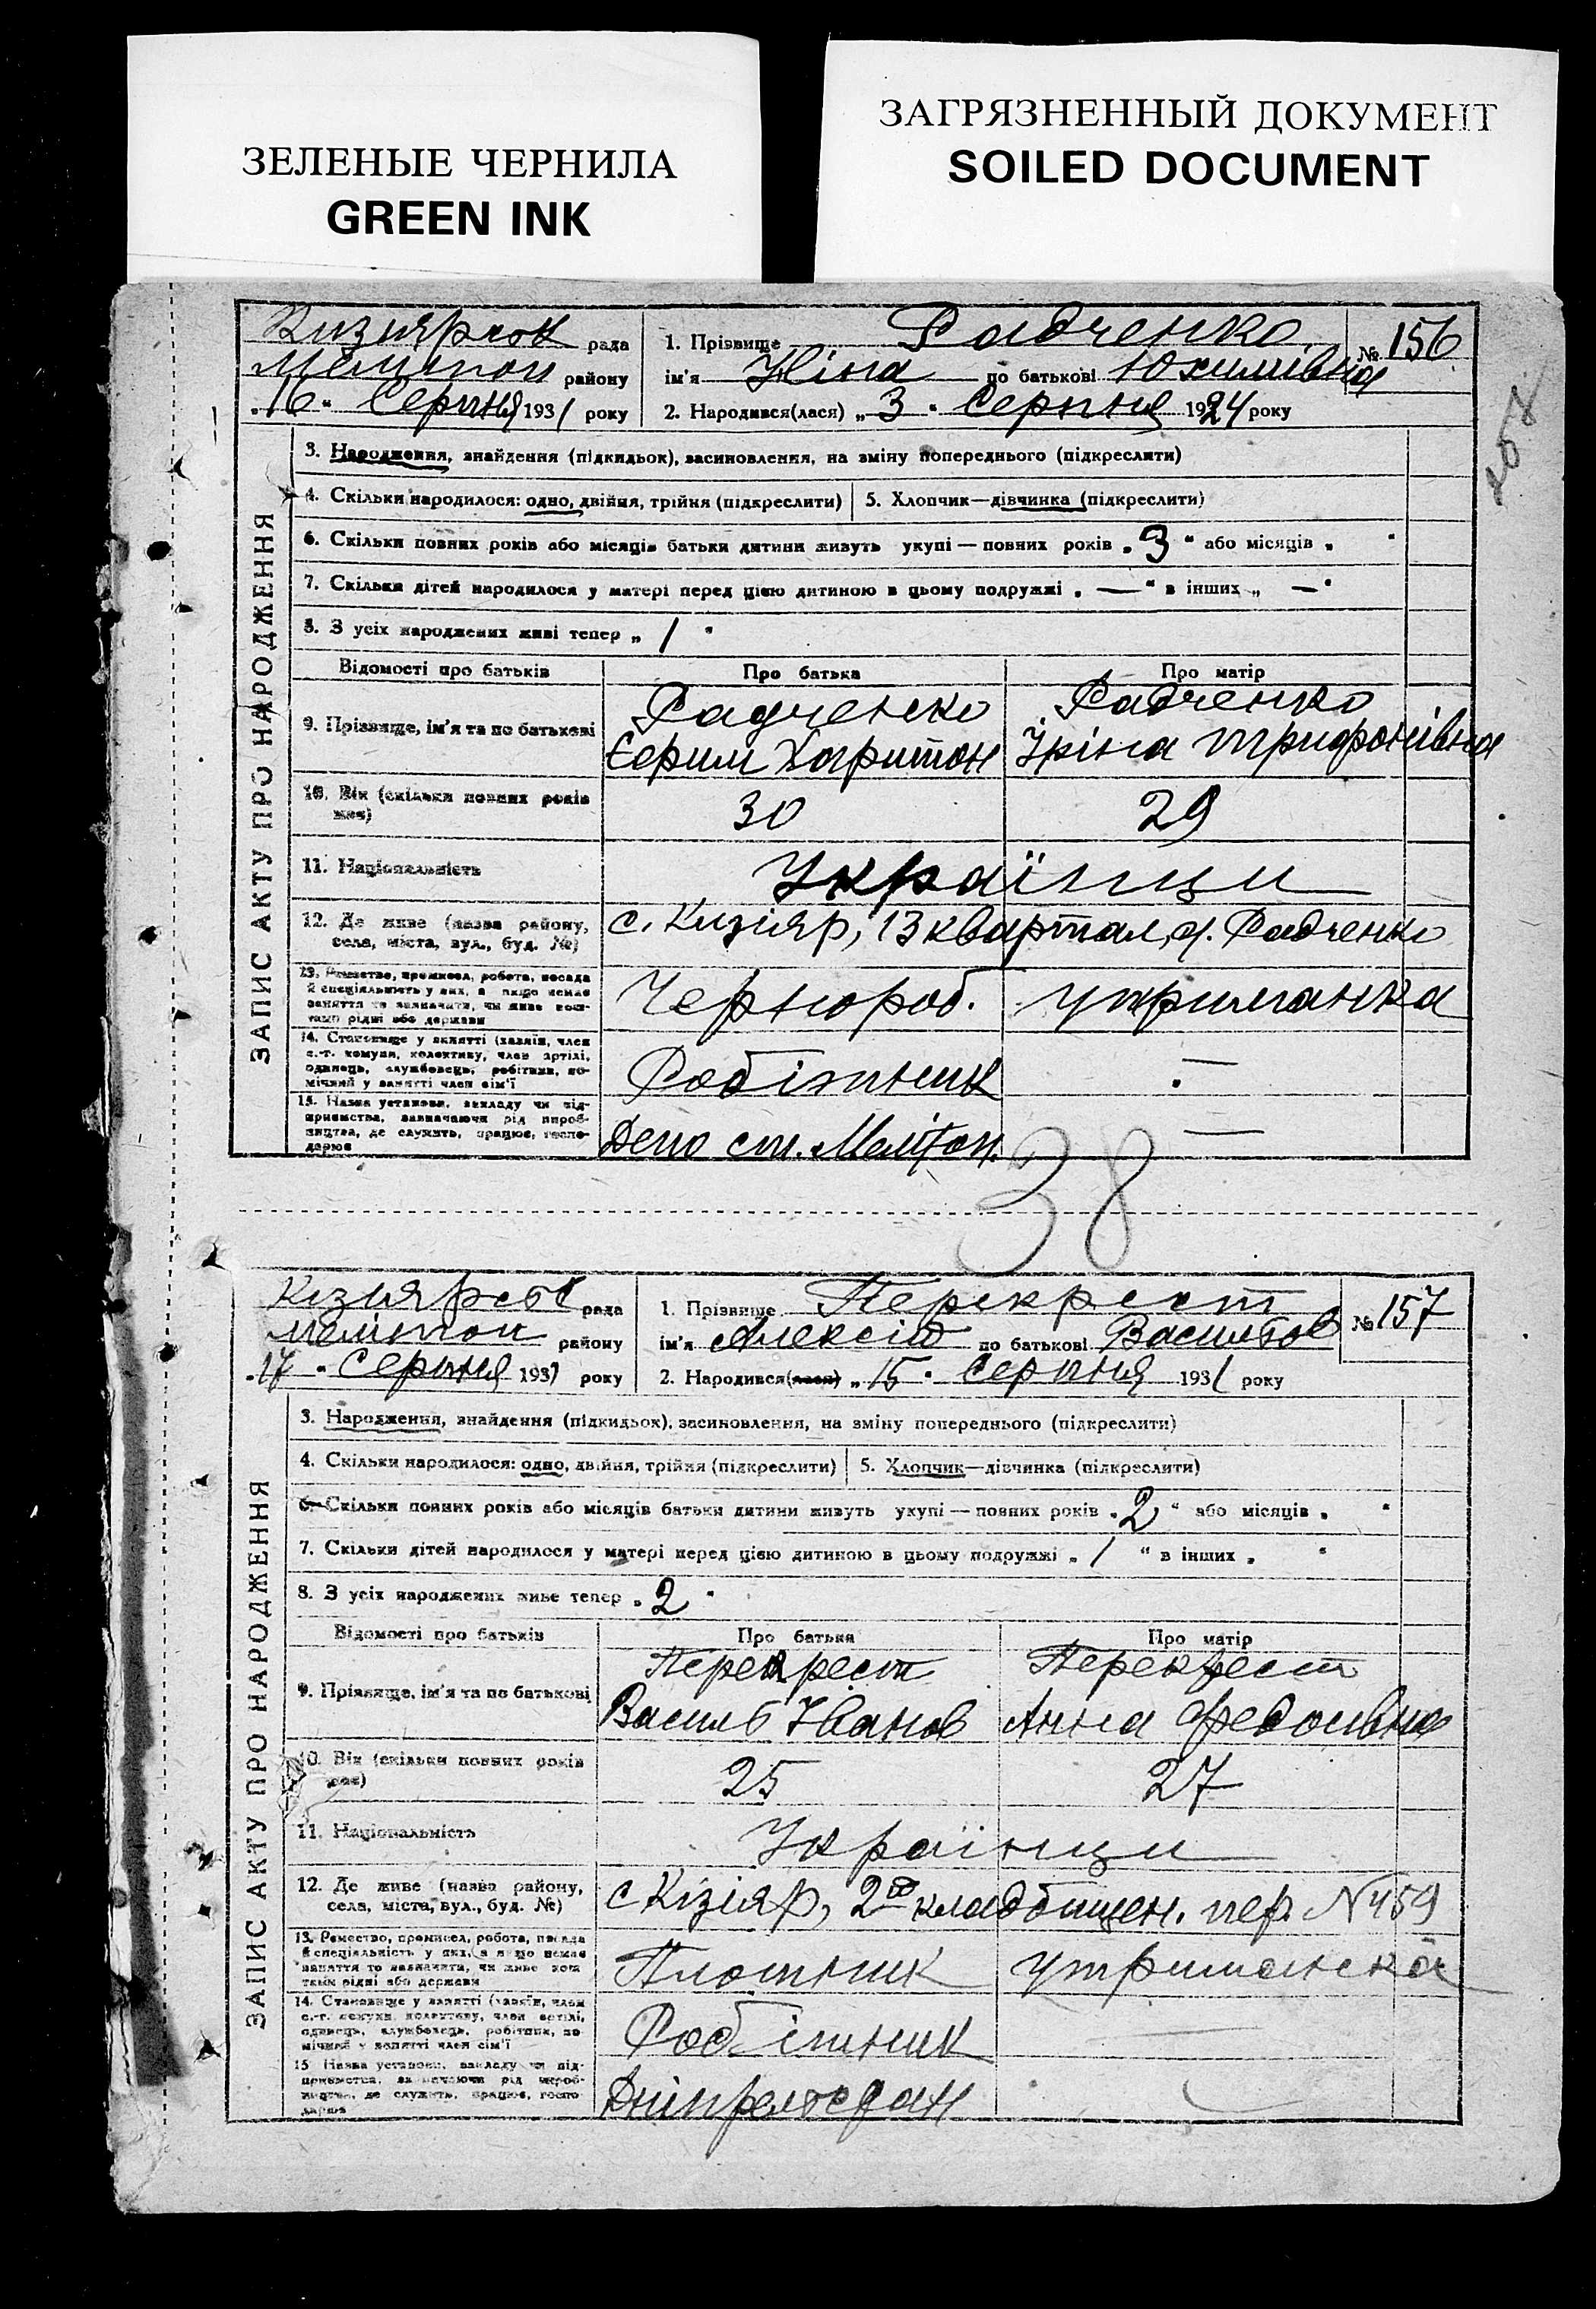 ЗЕЛЕНЫЕ ЧЕРНИЛА
GREEN INK
ЗАГРЯЗНЕННЫЙ ДОКУМЕНТ
SOILED DOCUMENT
рада
району
"16" Серпня 1931 року
1. Прізвище Радченко
ім'я Ніна по батькові Юхимівна
№ 156
2. Народився(лася) „3" Серпня 1924 року
ЗАПИС АКТУ ПРО НАРОДЖЕННЯ
3. Народження, знайдення (підкидьок), засиновлення, на зміну попереднього (підкреслити)
4. Скільки народилося: одно, двійня, трійня (підкреслити) 5. Хлопчик—дівчинка (підкреслити)
6. Скільки повних років або місяців батьки дитини живуть укупі — повних років „3" або місяців „ "
7. Скільки дітей народилося у матері перед цією дитиною в цьому подружжі „—" в інших „—"
8. З усіх народжених живі тепер „1"
Відомості про батьків Про батька Про матір
9. Прізвище, ім'я та по батькові
Радченко
Єфрим Харитон
Радченко
Іріна Трифонівна
10. Вік (скільки повних років має) 30 29
11. Національність Українци
12. Де живе (назва району,
села, міста, вул., буд. №)
с. Кизіяр, 13 квартал, Радченко
13. Ремество, промисел, робота, посада
й спеціальність у них, а якщо немає
заняття то зазначити, чи живе кош-
тами рідні або держави
Чернороб. утриманка
14. Становище у занятті (хазяїн, член
с.-г. комуни, колективу, член артілі,
одинець, службовець, робітник, по-
мічний у занятті член сім'ї
Робітник —
15. Назва установи, закладу чи під-
приємства, зазначаючи рід вироб-
ництва, де служить, працює, госпо-
дарює
Депо ст. Меліtоп. —
38
рада
Мелітоп району
"17" Серпня 1931 року
1. Прізвище Перекрест
ім'я Алексій по батькові Васильов
№ 157
2. Народився(лася) „15" Серпня 1931 року
ЗАПИС АКТУ ПРО НАРОДЖЕННЯ
3. Народження, знайдення (підкидьок), засиновлення, на зміну попереднього (підкреслити)
4. Скільки народилося: одно, двійня, трійня (підкреслити) 5. Хлопчик—дівчинка (підкреслити)
6. Скільки повних років або місяців батьки дитини живуть укупі — повних років „2" або місяців „ "
7. Скільки дітей народилося у матері перед цією дитиною в цьому подружжі „1" в інших „ "
8. З усіх народжених живе тепер „2"
Відомості про батьків Про батька Про матір
9. Прізвище, ім'я та по батькові
Перекрест
Василь Іванов
Перекрест
Анна Федоівна
10. Вік (скільки повних років має) 25 27
11. Національність Українци
12. Де живе (назва району,
села, міста, вул., буд. №)
с Кізіяр, 2ое кладбищен. пер. N 459
13. Ремество, промисел, робота, посада
й спеціальність у них, а якщо немає
заняття то зазначити, чи живе кош-
тами рідні або держави
Плотник утриманка
14. Становище у занятті (хазяїн, член
с.-г. комуни, колективу, член артілі,
одинець, службовець, робітник, по-
мічний у занятті член сім'ї
Робітник —
15 Назва установи, закладу чи під-
приємства, зазначаючи рід вироб-
ництва, де служить, працює, госпо-
дарює